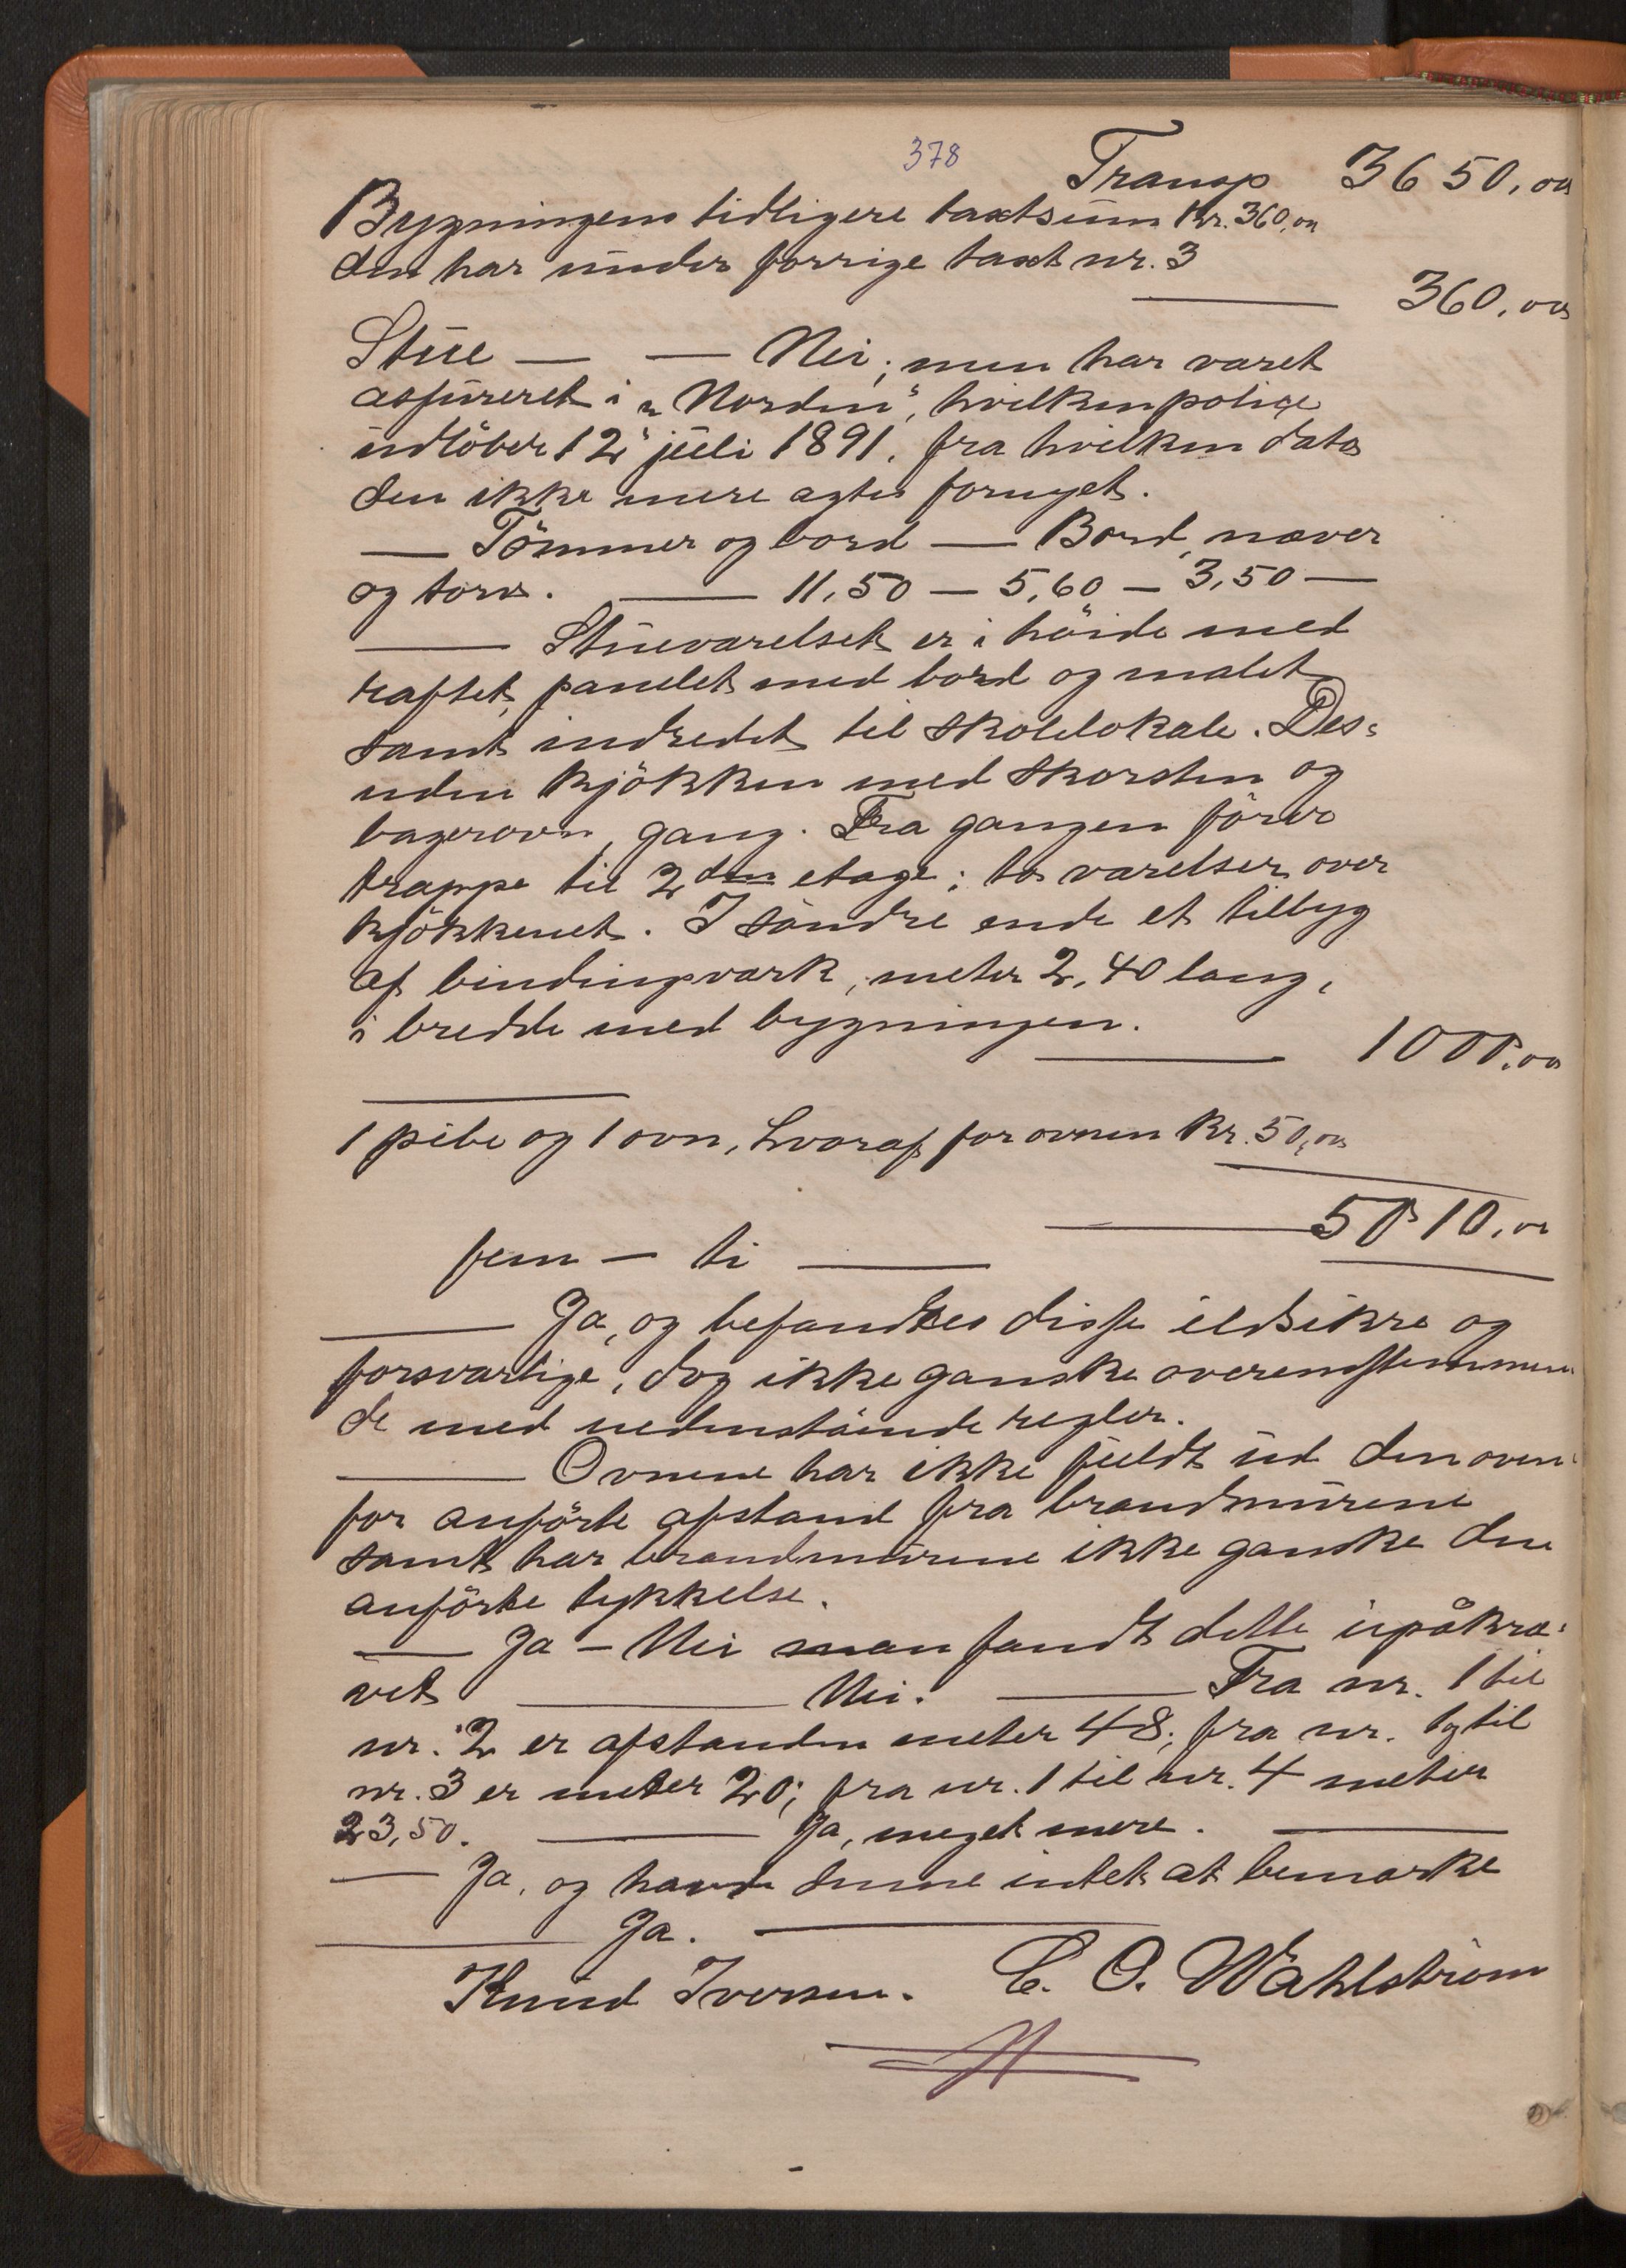 378
Transp 3650,00
Bygningens tidligere taxtsum kr. 360,00
den har under forrige taxt nr. 3
——— 360,00
Stue — — Nei; men har været
assureret i „Norden", hvilken polise
udlöber 12 juli 1891, fra hvilken dato
den ikke mere agtes fornyet.
— Tömmer og bord — Bord, næver
og torv. —— 11,50 — 5,60 — 3,50 —
—— Stueværelset er i höide med
raftet, panelet med bord og malet
samt indredet til skolelokale. Des=
uden kjökken med skorsten og
bagerovn, gang. Fra gangen förer
trappe til 2den etage; to værelser over
kjökkenet. I söndre ende et tilbyg
af bindingsværk, meter 2,40 lang,
i bredde med bygningen.
——— 1000,00
1 pibe og 1 ovn, hvoraf for ovnen kr. 50,00
——— 5010,00
fem — ti ———
——— Ja, og befandtes disse ildsikre og
forsvarlige, dog ikke ganske overensstemmen
de med nedenstående regler.
——— Ovnene har ikke fuldt ud den oven=
for anförte afstand fra brandmurene
samt har brandmurene ikke ganske den
anförte tykkelse.
—— Ja — Nei man fandt dette upåkræ=
vet ——— Nei. ——— Fra nr. 1 til
nr. 2 er afstanden meter 48; fra nr. 1 til
nr. 3 er meter 20; fra nr. 1 til nr. 4 meter
23,50. ——— Ja, meget mere. ———
—— Ja, og havde denne intet at bemærke
——— Ja. ———
Knud Iversen. C. O. Wahlstrøm